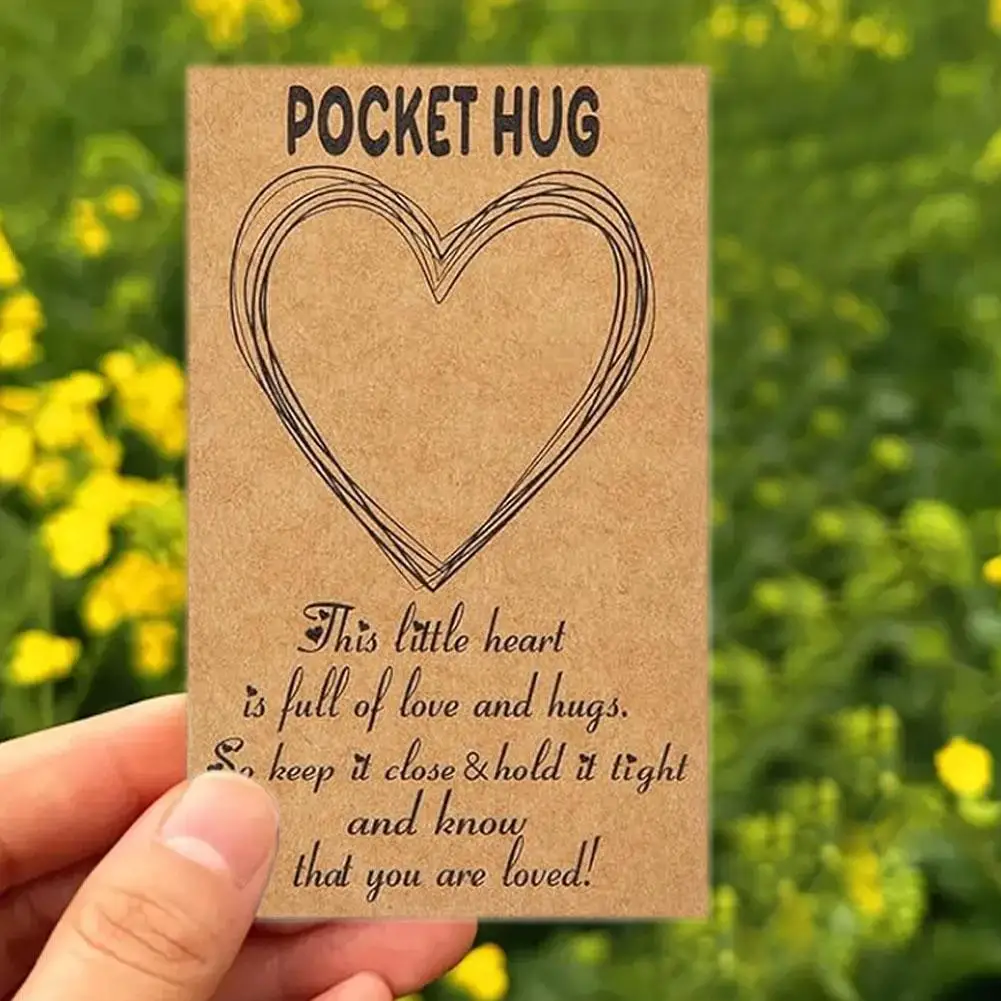 POCKET HUG
This little heart
is full of love and hugs.
So keep it close & hold it tight
and know
that you are loved!